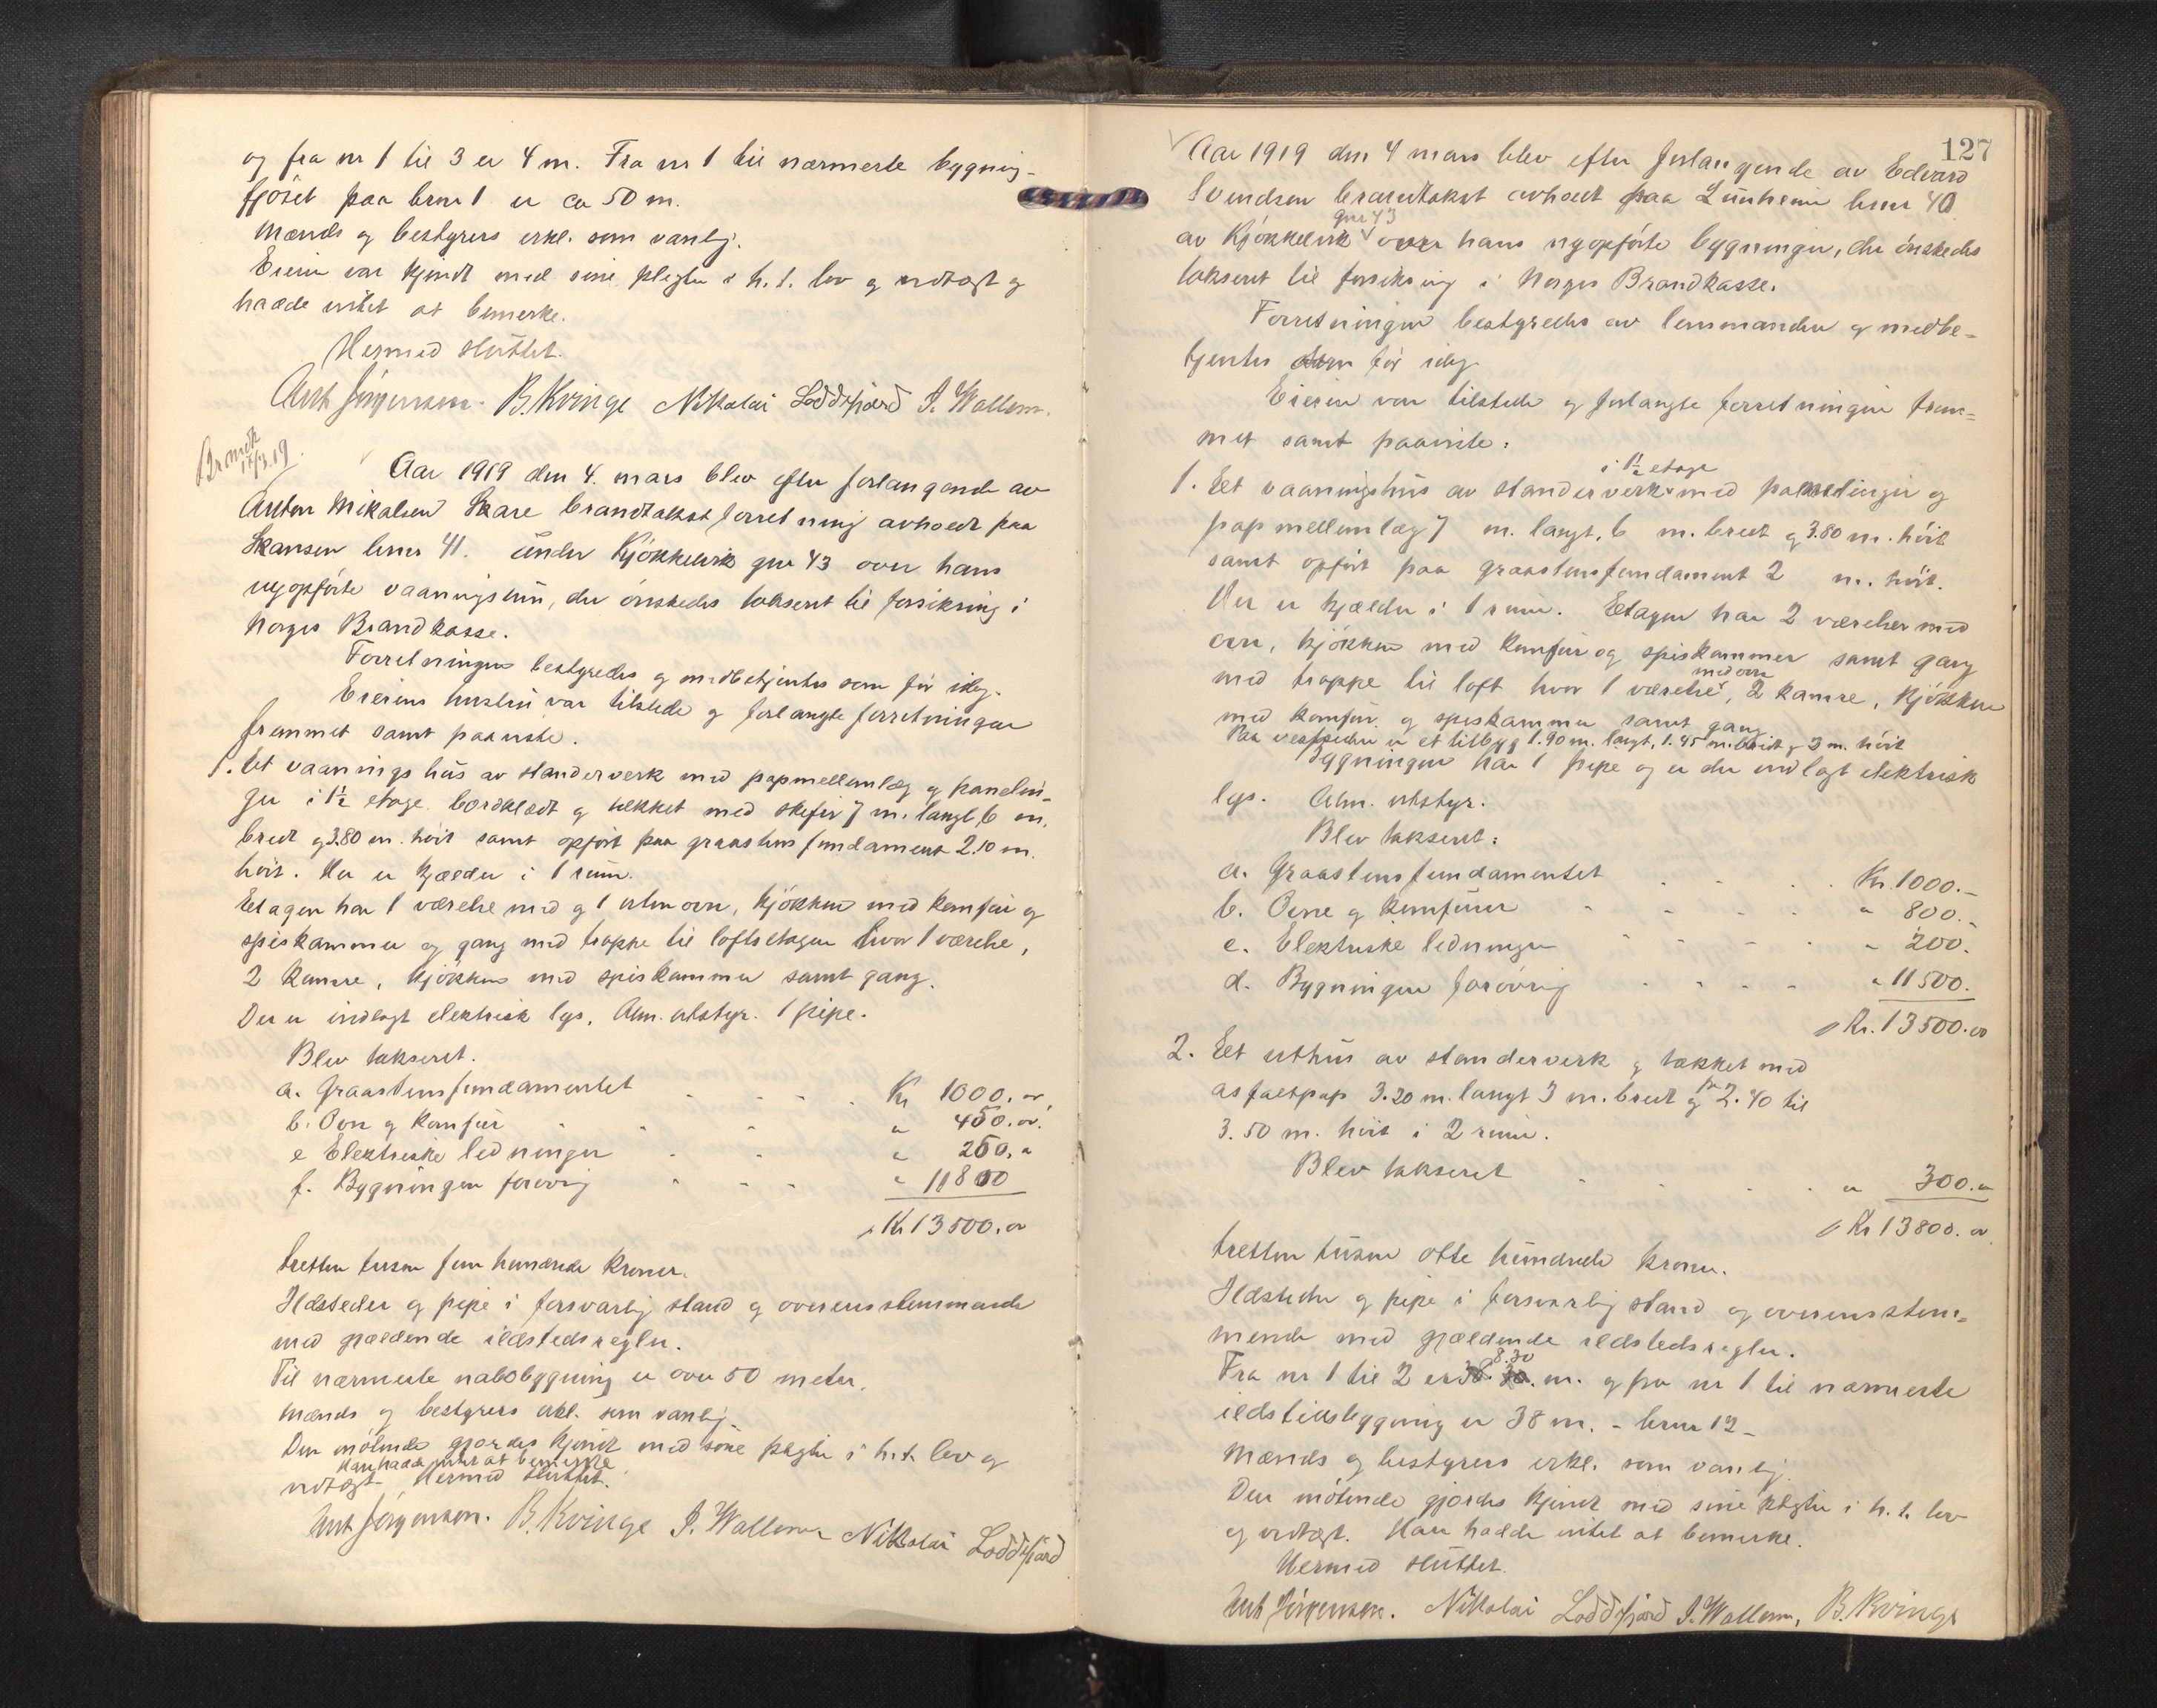 og fra nr 1 til 3 er 4 m. Fra nr 1 til nærmeste bygning-
fjöset paa brnr 1 er ca 50 m.
Mænds og bestyrers erkl. som vanlig.
Eieren var kjendt med sine pligter i h. t. lov og vedtægt og
hadde intet at bemerke.
Hermed sluttet.
Ant Jörgensen. B. Kvinge Nikolai Loddefjord I. Wallem.
17/3.19.
Aar 1919 den 4. mars blev efter forlangende av
Anton Mikalsen Skare brandtakstforretning avholdt paa
Skansen brnr 41. under Kjökkelvik gnr 43 over hans
nyopförte vaaningshus, der önskedes taksert til forsikring i
Norges Brandkasse.
Forretningen bestyredes og medbetjentes som för idag.
Eierens hustru var tilstede og forlangte forretningen
fremmet samt paaviste.
1. Et vaaningshus av standerverk med papmellemlæg og panelin-
ger i 1½ etage bordklædt og tækket med skifer 7 m. langt, 6 m.
bredt og 3.80 m. höit samt opfört paa graastensfundament 2.10 m.
höit. Her er kjælder i 1 rum.
Etagen har 1 værelse med og 1 uten ovn, kjökken med komfur og
spiskammer og gang med trappe til loftsetagen hvor 1 værelse,
2 kamre, kjökken med spiskammer samt gang.
Der er indlagt elektrisk lys. Alm. utstyr. 1 pipe.
Blev taksert.
a. Graastensfundamentet . . . . Kr 1000. oo
b. Ovn og komfur . . . " 450. oo
e Elektriske ledninger . . " 250. "
f. Bygningen forövrig . . . " 11800
Kr 13500. oo
tretten tusen fem hundrede kroner.
Ildsteder og pipe i forsvarlig stand og overensstemmende
med gjældende ildstedsregler.
Til nærmeste nabobygning er over 50 meter.
Mænds og bestyrers erkl. som vanlig.
Den mötende gjordes kjendt med sine pligter i h. t. lov og
Han hadde intet at bemerke
vedtægt. Hermed sluttet.
Ant Jörgensen. B. Kvinge I. Wallem Nikolai Loddefjord
127
Aar 1919 den 4 mars blev efter forlangende av Edvard
Svendsen brandtakst avholdt paa Lunheim brnr 40
gnr 43
av Kjökkelvik over hans nyopförte bygninger, der önskedes
taksert til forsikring i Norges Brandkasse.
Forretningen bestyredes av lensmanden og medbe-
tjentes som för idag
Eieren var tilstede og forlangte forretningen frem-
met samt paaviste:
i 1½ etage
1. Et vaaningshus av standerverk med panelinger og
papmellemlæg 7 m. langt, 6 m. bredt og 3.80 m. höit
samt opfört paa graastensfundament 2 m. höit.
Der er kjælder i 1 rum. Etagen har 2 værelser med
ovn, kjökken med komfur og spiskammer samt gang
med ovn
med trappe til loft hvor 1 værelse, 2 kamre, kjökken
med komfur og spiskammer samt gang
Paa vestsiden er et tilbygg 1.90 m. langt, 1.45 m. bredt og 3 m. höit
Bygningen har 1 pipe og er der indlagt elektrisk
lys. Alm. utstyr.
Blev taksert:
a. Graastensfundamentet . . . . Kr. 1000.-
b. Ovne og komfurer . . . . " 800.-
c. Elektriske ledninger . . . . " 200.
d. Bygningen forövrig . . . . " 11500.
Kr. 13500. oo
2. Et uthus av standerverk og tækket med
fra
asfaltpap 3.20 m. langt 3 m. bredt og 2.40 til
3.50 m. höit i 2 rum.
Blev taksert . . . . " 300. "
Kr 13800. oo
tretten tusen otte hundrede kroner.
Ildsteder og pipe i forsvarlig stand og overensstem-
mende med gjældende ildstedsregler.
8.30
Fra nr 1 til 2 er m. og fra nr 1 til nærmeste
ildstedsbygning er 38 m. - brnr 12 -
Mænds og bestyrers erkl. som vanlig.
Den mötende gjordes kjendt med sine pligter i h. t. lov
og vedtægt. Han hadde intet at bemerke.
Hermed sluttet.
Ant Jörgensen. Nikolai Loddefjord I. Wallem, B. Kvinge